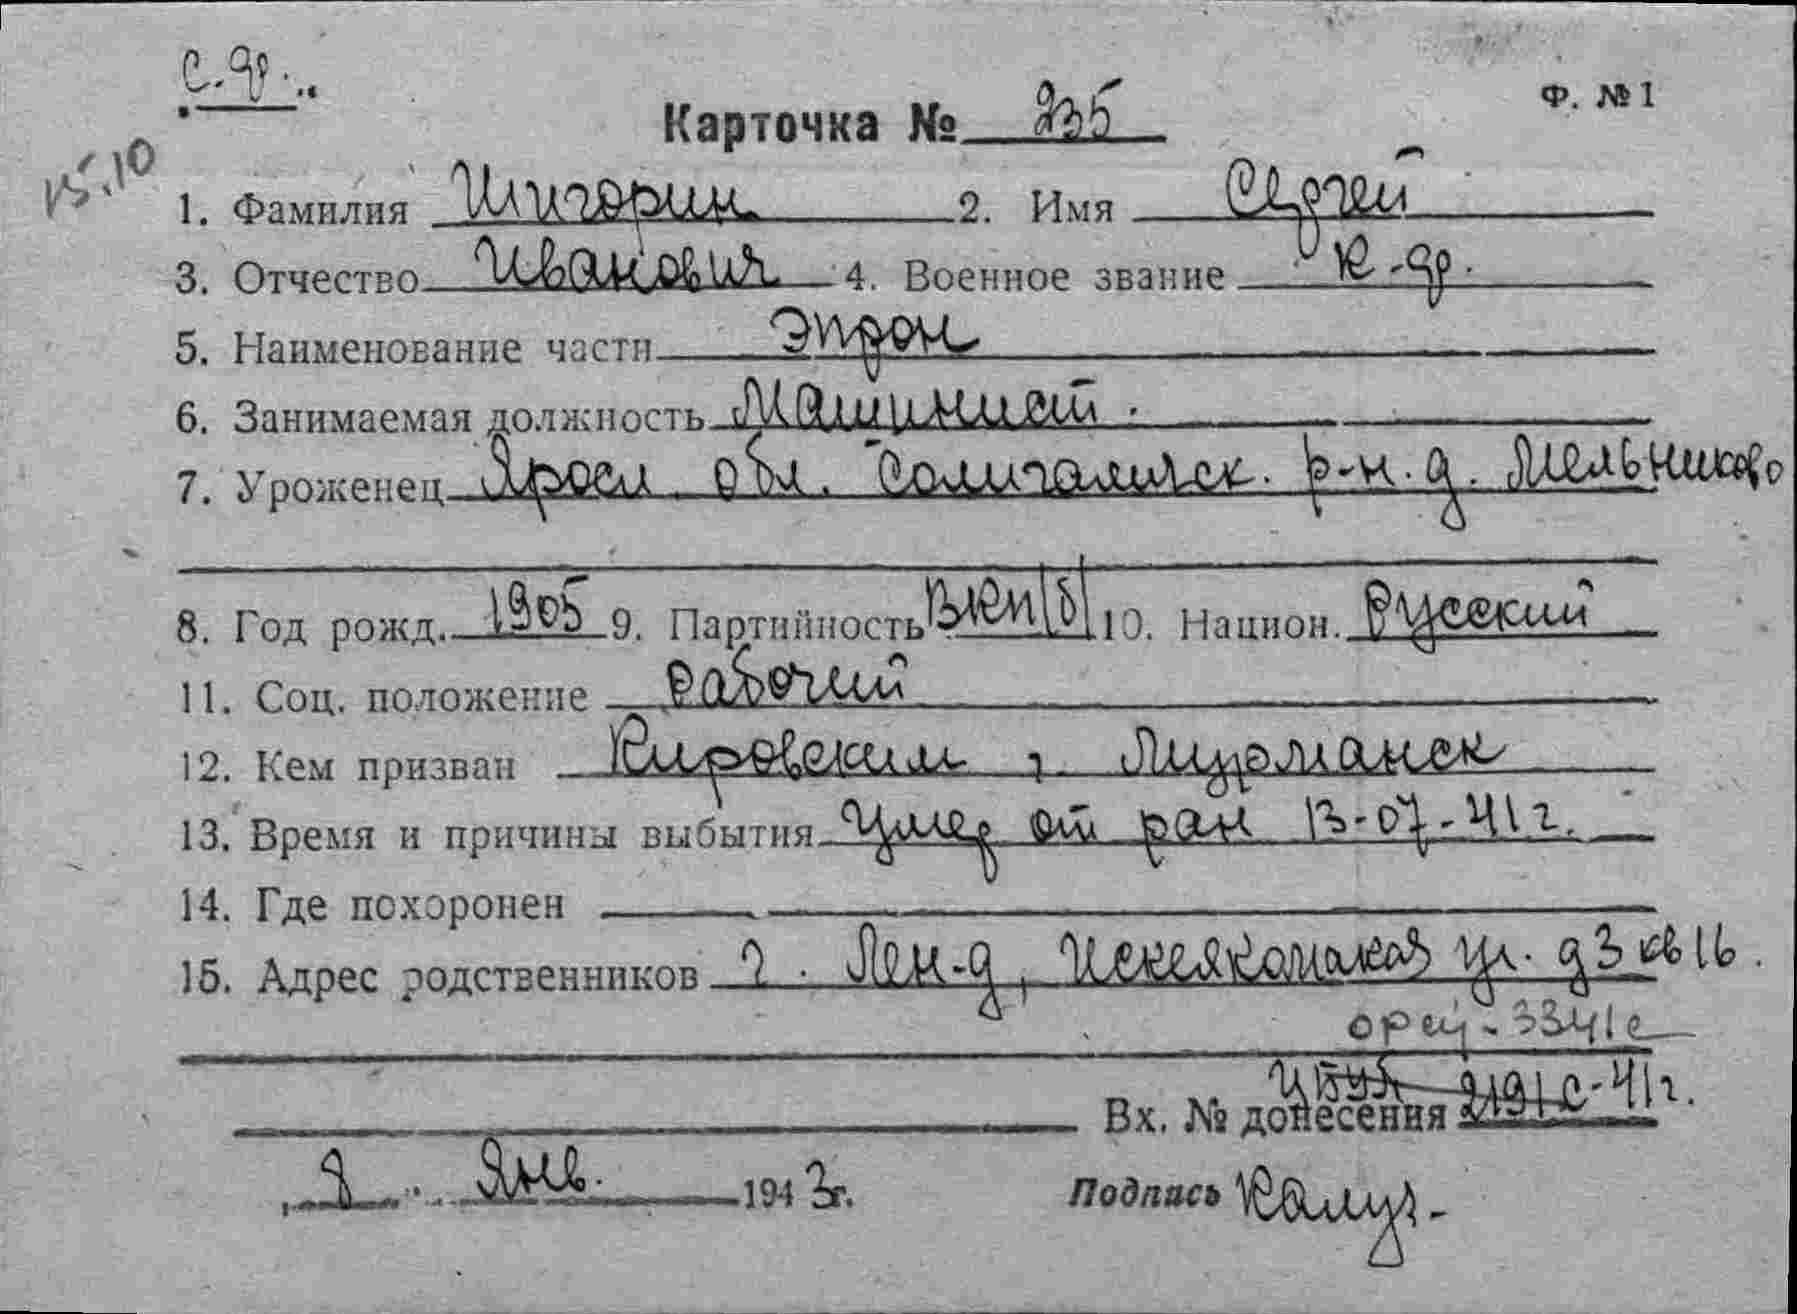 с. др.
Карточка № 235 Ф. № 1
15.10
1. Фамилия Шигорин 2. Имя Сергей
3. Отчество Иванович 4. Военное звание к-др.
5. Наименование части Эпрон
6. Занимаемая должность Машинист.
7. Уроженец Яросл обл. Солигаличск. р-н. д. Мельниково
8. Год рожд. 1905 9. Партийность ВКП/б/ 10. Национ. Русский
11. Соц. положение Рабочий
12. Кем призван Кировским г. Мурманск
13. Время и причины выбытия Умер от ран 13-07-41 г.
14. Где похоронен
15. Адрес родственников г. Лен-д, ул. д 3 кв 16.
3341с
Вх. № донесения 2191с-41г.
8 Янв. 1943г. Подпись